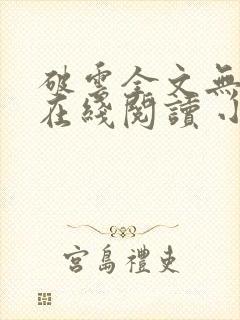 破雲全文無
在綫閱讀 小
宮島禮吏